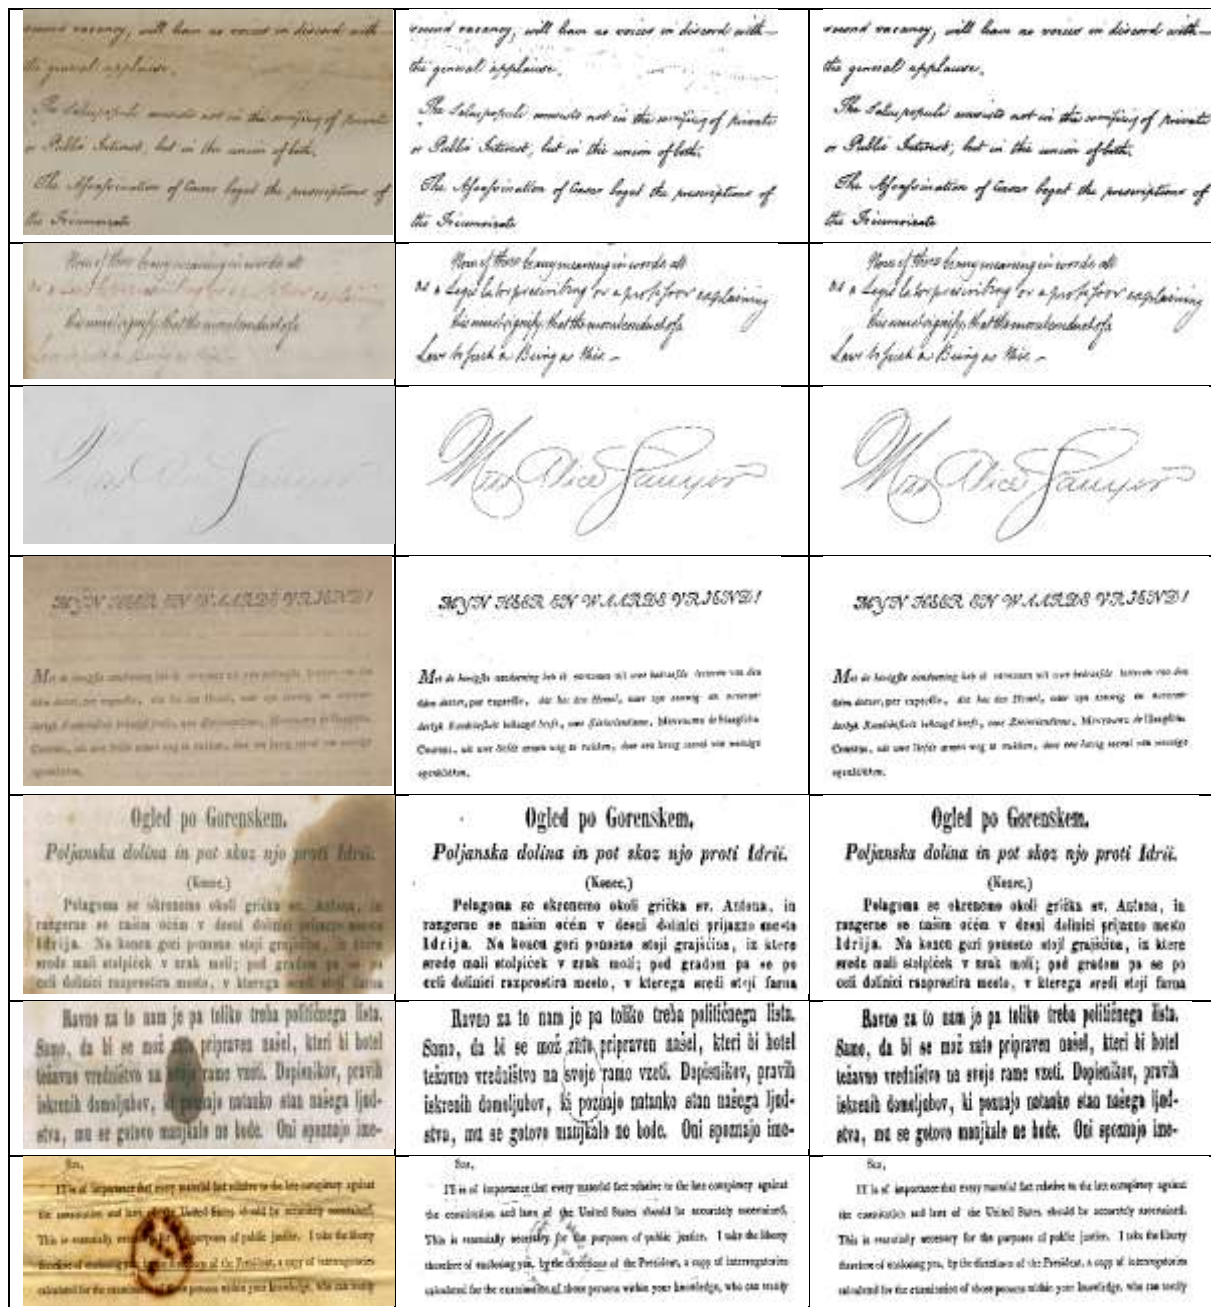 second vacancy, will have no voices in discord with
the general applause.
The Salus populi consists not in the of private
or Public Interest, but in the union of both.
The Assassination of Cæsar begot the proscriptions of
the Triumvirate
second vacancy, will have no voices in discord with
the general applause.
The Salus populi consists not in the of private
or Public Interest, but in the union of both.
The Assassination of Cæsar begot the proscriptions of
the Triumvirate
second vacancy, will have no voices in discord with
the general applause.
The Salus populi consists not in the of private
or Public Interest, but in the union of both.
The Assassination of Cæsar begot the proscriptions of
the Triumvirate
meaning in words all
as a
signify, that the moral conduct of a
meaning in words all
as a Legislator prescribing or a professor explaining
his must signify, that the moral conduct of a
Law to such a Being as this. –
meaning in words all
as a Legislator prescribing or a professor explaining
his must signify, that the moral conduct of a
Law to such a Being as this. –
Miss Alice Sawyer
Miss Alice Sawyer
MYN HEER EN WAARDE VRIEND!
Met de
MYN HEER EN WAARDE VRIEND!
Met de hevigste aandoening heb ik vernomen uit uwe bedroefde letteren van den
dat het den Hemel, naar zyn eeuwig en
behaagd heeft, uwe Mevrouwe de
uit uwe liefde armen weg te rukken, door een lastig toeval van weinige
ogenblikken.
MYN HEER EN WAARDE VRIEND!
Met de hevigste aandoening heb ik vernomen uit uwe bedroefde letteren van den
dat het den Hemel, naar zyn eeuwig en
behaagd heeft, uwe Mevrouwe de
uit uwe liefde armen weg te rukken, door een lastig toeval van weinige
ogenblikken.
Ogled po Gorenskem.
Poljanska dolina in pot skoz njo proti Idrii.
(Konec.)
Pelagoma se okrenemo okoli grička sv. Antona, in
razgerne se našim očém v desni dolinici prijazno mesto
Idrija. Na koncu gori ponosno stoji grajščina, iz ktere
srede mali stolpiček v zrak moli; pod gradom pa se po
celi dolinici razprostira mesto, v kterega sredi stoji farna
Ogled po Gorenskem.
Poljanska dolina in pot skoz njo proti Idrii.
(Konec.)
Pelagoma se okrenemo okoli grička sv. Antona, in
razgerne se našim očém v desni dolinici prijazno mesto
Idrija. Na koncu gori ponosno stoji grajščina, iz ktere
srede mali stolpiček v zrak moli; pod gradom pa se po
celi dolinici razprostira mesto, v kterega sredi stoji farna
Ogled po Gorenskem.
Poljanska dolina in pot skoz njo proti Idrii.
(Konec.)
Pelagoma se okrenemo okoli grička sv. Antona, in
razgerne se našim očém v desni dolinici prijazno mesto
Idrija. Na koncu gori ponosno stoji grajščina, iz ktere
srede mali stolpiček v zrak moli; pod gradom pa se po
celi dolinici razprostira mesto, v kterega sredi stoji farna
Ravno za to nam je pa toliko treba političnega lista.
Samo, da bi se mož zato pripraven našel, kteri bi hotel
težavno vredništvo na svoje ramo vzeti. Dopisnikov, pravih
iskrenih domoljubov, ki poznajo natanko stan našega ljud-
stva, mu se gotovo manjkalo ne bode. Oni spoznajo ime-
Ravno za to nam je pa toliko treba političnega lista.
Samo, da bi se mož zato pripraven našel, kteri bi hotel
težavno vredništvo na svoje ramo vzeti. Dopisnikov, pravih
iskrenih domoljubov, ki poznajo natanko stan našega ljud-
stva, mu se gotovo manjkalo ne bode. Oni spoznajo ime-
Ravno za to nam je pa toliko treba političnega lista.
Samo, da bi se mož zato pripraven našel, kteri bi hotel
težavno vredništvo na svoje ramo vzeti. Dopisnikov, pravih
iskrenih domoljubov, ki poznajo natanko stan našega ljud-
stva, mu se gotovo manjkalo ne bode. Oni spoznajo ime-
Sir,
IT is of importance that every material fact relative to the late conspiracy against
the constitution and laws of the United States should be accurately ascertained.
This is essentially necessary for the purposes of public justice. I take the liberty
therefore of enclosing you, by the directions of the President, a copy of interrogatories
calculated for the examination of those persons within your knowledge, who can testify
Sir,
IT is of importance that every material fact relative to the late conspiracy against
the constitution and laws of the United States should be accurately ascertained.
This is essentially necessary for the purposes of public justice. I take the liberty
therefore of enclosing you, by the directions of the President, a copy of interrogatories
calculated for the examination of those persons within your knowledge, who can testify
Sir,
IT is of importance that every material fact relative to the late conspiracy against
the constitution and laws of the United States should be accurately ascertained.
This is essentially necessary for the purposes of public justice. I take the liberty
therefore of enclosing you, by the directions of the President, a copy of interrogatories
calculated for the examination of those persons within your knowledge, who can testify